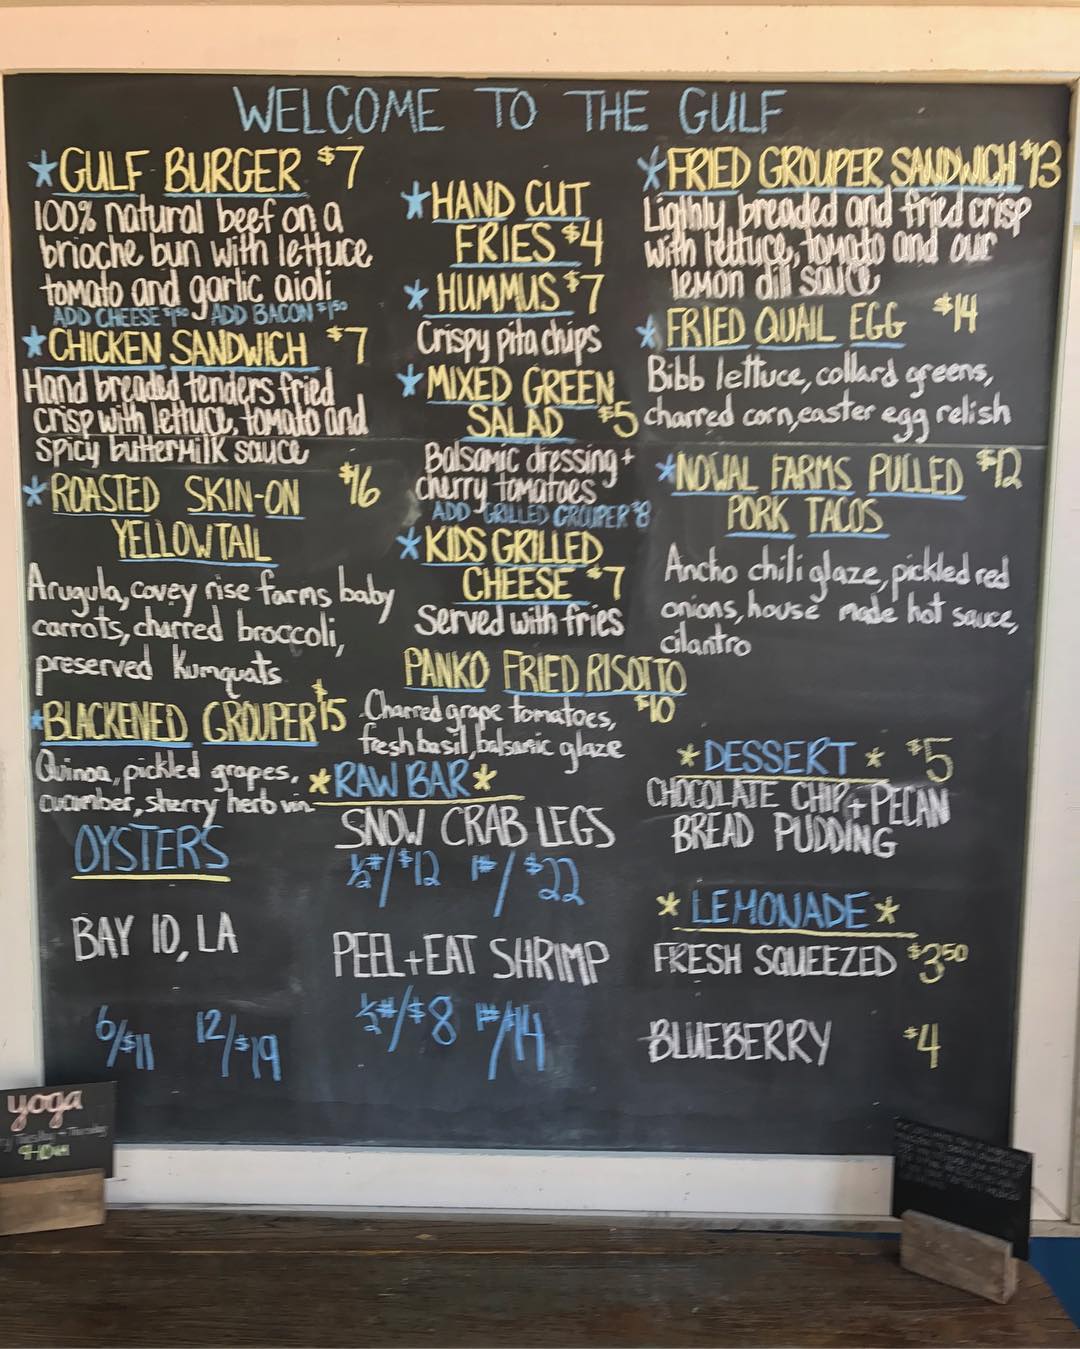 WELCOME TO THE GULF
*GULF BURGER $7
100% natural beef on a
brioche bun with lettuce
tomato and garlic aioli
ADD CHEESE $1.50 ADD BACON $1.50
*CHICKEN SANDWICH $7
Hand breaded tenders fried
crisp with lettuce, tomato and
spicy buttermilk sauce
*ROASTED SKIN-ON $16
YELLOWTAIL
Arugula, covey rise farms baby
carrots, charred broccoli,
preserved kumquats
*BLACKENED GROUPER $15
Quinoa, pickled grapes,
cucumber, sherry herb vin
OYSTERS
BAY 10, LA
6/$11 12/$19
*HAND CUT
FRIES $4
*HUMMUS $7
Crispy pita chips
*MIXED GREEN
SALAD $5
Balsamic dressing +
cherry tomatoes
ADD GRILLED GROUPER $8
*KIDS GRILLED
CHEESE $7
Served with fries
PANKO FRIED RISOTTO
$10
Charred grape tomatoes,
fresh basil, balsamic glaze
*RAW BAR*
SNOW CRAB LEGS
½#/$12 1#/$22
PEEL+EAT SHRIMP
½#/$8 1#/$14
*FRIED GROUPER SANDWICH $13
Lighly breaded and fried crisp
with lettuce, tomato and our
lemon dill sauce
*FRIED QUAIL EGG $14
Bibb lettuce, collard greens,
charred corn, easter egg relish
*NOWAL FARMS PULLED $12
PORK TACOS
Ancho chili glaze, pickled red
onions, house made hot sauce,
cilantro
*DESSERT* $5
CHOCOLATE CHIP + PECAN
BREAD PUDDING
*LEMONADE*
FRESH SQUEEZED $3.50
BLUEBERRY $4
yoga
9-10AM